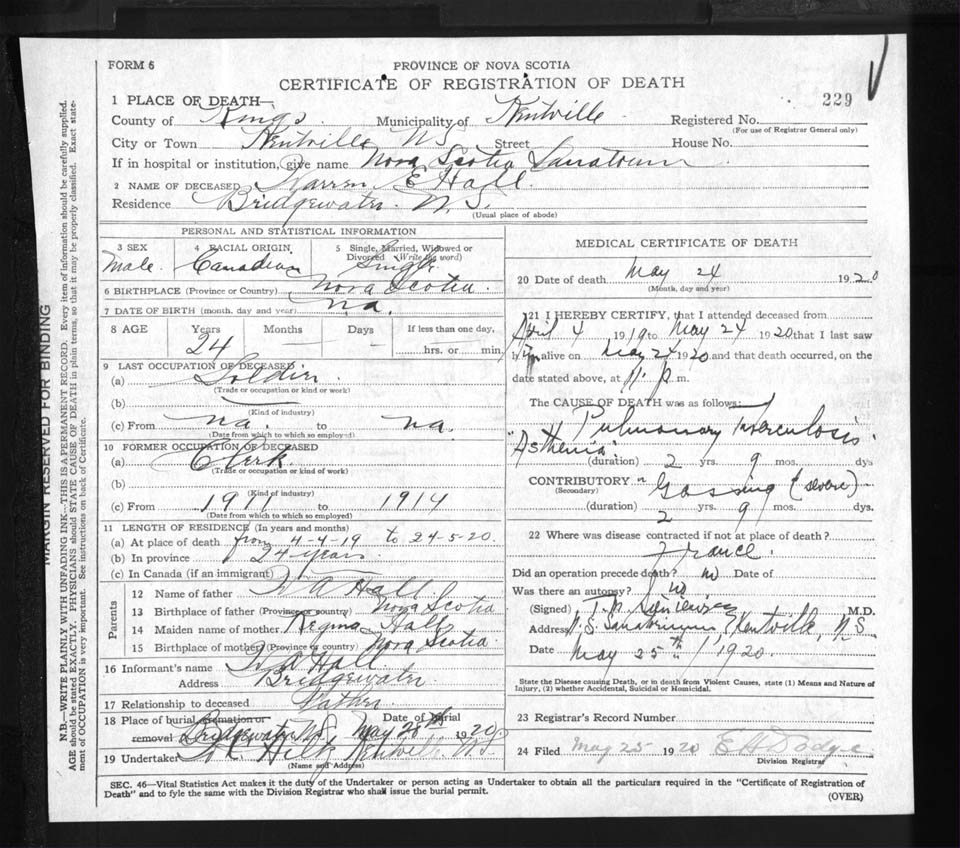 FORM 6
PROVINCE OF NOVA SCOTIA
CERTIFICATE OF REGISTRATION OF DEATH
229
1 PLACE OF DEATH—
County of Kings Municipality of Kentville Registered No.
(For use of Registrar General only)
City or Town Kentville N S Street House No.
If in hospital or institution, give name Nova Scotia Sanatorium
2 NAME OF DECEASED Warren E Hall.
Residence Bridgewater. N.S.
(Usual place of abode)
PERSONAL AND STATISTICAL INFORMATION
3 SEX 4 RACIAL ORIGIN 5 Single, Married, Widowed or Divorced (Write the word)
Male. Canadian Single
6 BIRTHPLACE (Province or Country) Nova Scotia.
7 DATE OF BIRTH (month, day and year) na.
8 AGE Years Months Days If less than one day,
24 — — hrs. or min.
9 LAST OCCUPATION OF DECEASED
(a) Soldier.
(Trade or occupation or kind of work)
(b)
(Kind of industry)
(c) From na. to na.
(Date from which to which so employed)
10 FORMER OCCUPATION OF DECEASED
(a) Clerk.
(Trade or occupation or kind of work)
(b)
(Kind of industry)
(c) From 1911 to 1914
(Date from which to which so employed)
11 LENGTH OF RESIDENCE (In years and months)
(a) At place of death from 4-4-19 to 24-5-20.
(b) In province 24 years.
(c) In Canada (if an immigrant)
Parents
12 Name of father W A Hall
13 Birthplace of father (Province or country) Nova Scotia
14 Maiden name of mother Regina Hall
15 Birthplace of mother (Province or country) Nova Scotia
16 Informant's name W A Hall
Address Bridgewater
17 Relationship to deceased Father
18 Place of burial, cremation or removal Bridgewater N.S. Date of Burial May 26th 1920
19 Undertaker Kentville N.S.
(Name and Address)
MEDICAL CERTIFICATE OF DEATH
20 Date of death May 24 1920
(Month, day and year)
21 I HEREBY CERTIFY, that I attended deceased from
April 4 1919 to May 24 1920 that I last saw
him alive on May 24 1920 and that death occurred, on the
date stated above, at 11. p m.
The CAUSE OF DEATH was as follows:
Pulmonary Tuberculosis.
"Asthenia".
(duration) 2 yrs. 9 mos. dys
CONTRIBUTORY Gassing (severe)
(Secondary)
(duration) 2 yrs. 9 mos. dys.
22 Where was disease contracted if not at place of death?
France.
Did an operation precede death? no Date of
Was there an autopsy? no
(Signed) M.D.
Address N.S. Sanatorium, Kentville, N S
Date May 25th / 1920.
State the Disease causing Death, or in death from Violent Causes, state (1) Means and Nature of
Injury, (2) whether Accidental, Suicidal or Homicidal.
23 Registrar's Record Number
24 Filed May 25 1920 E H Dodge
Division Registrar
SEC. 46—Vital Statistics Act makes it the duty of the Undertaker or person acting as Undertaker to obtain all the particulars required in the "Certificate of Registration of
Death" and to fyle the same with the Division Registrar who shall issue the burial permit.
(OVER)
MARGIN RESERVED FOR BINDING
N.B.—WRITE PLAINLY WITH UNFADING INK—THIS IS A PERMANENT RECORD. Every item of information should be carefully supplied.
AGE should be stated EXACTLY. PHYSICIANS should STATE CAUSE OF DEATH in plain terms, so that it may be properly classified. Exact statement of OCCUPATION is very important. See instructions on back of Certificate.